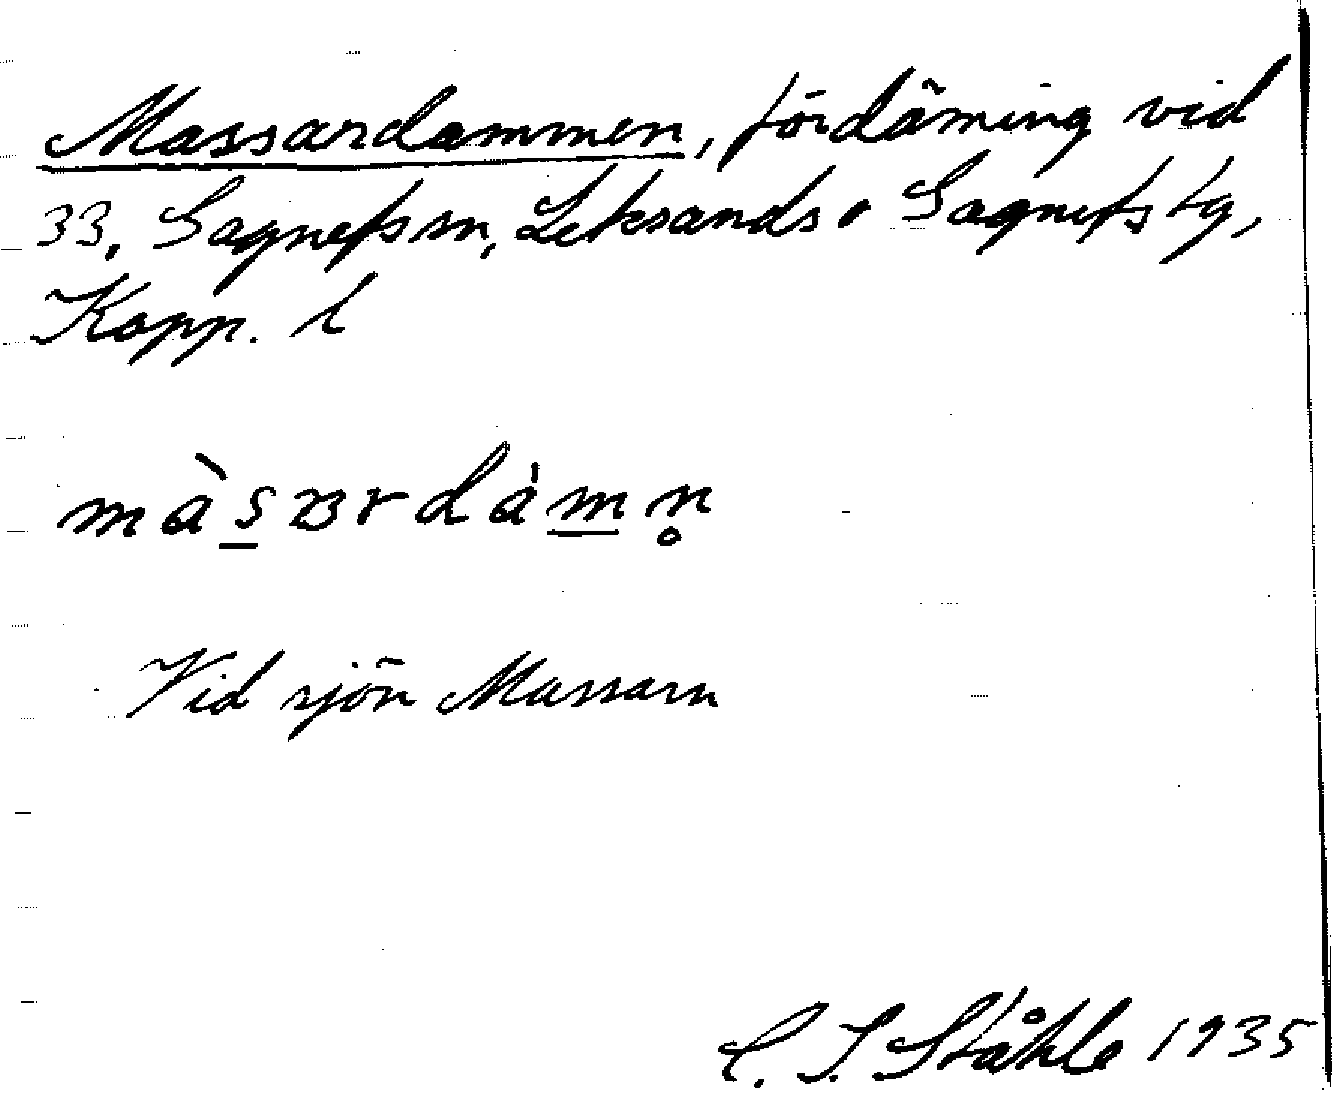 Massardammen, fördämning vid
33, Gagnefs sn, Leksands o Gagnefs tg,
Kopp. l
Vid sjön Massarn
C. I. Ståhle 1935